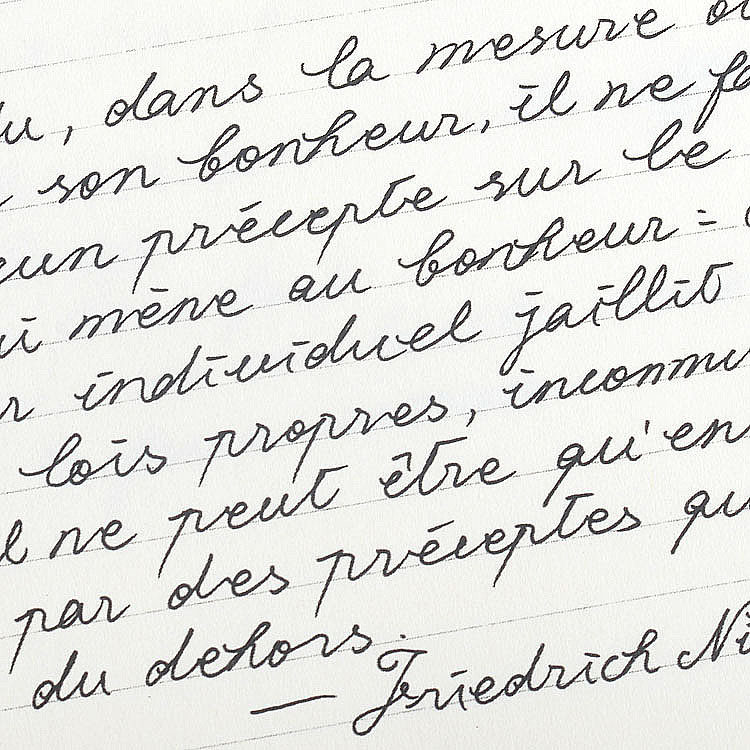 du, dans la mesure où
son bonheur, il ne fa
cun précepte sur le
ui mène au bonheur :
r individuel jaillit
lois propres, inconnu
il ne peut être qu'en
par des préceptes qu
du dehors.
— Friedrich Ni